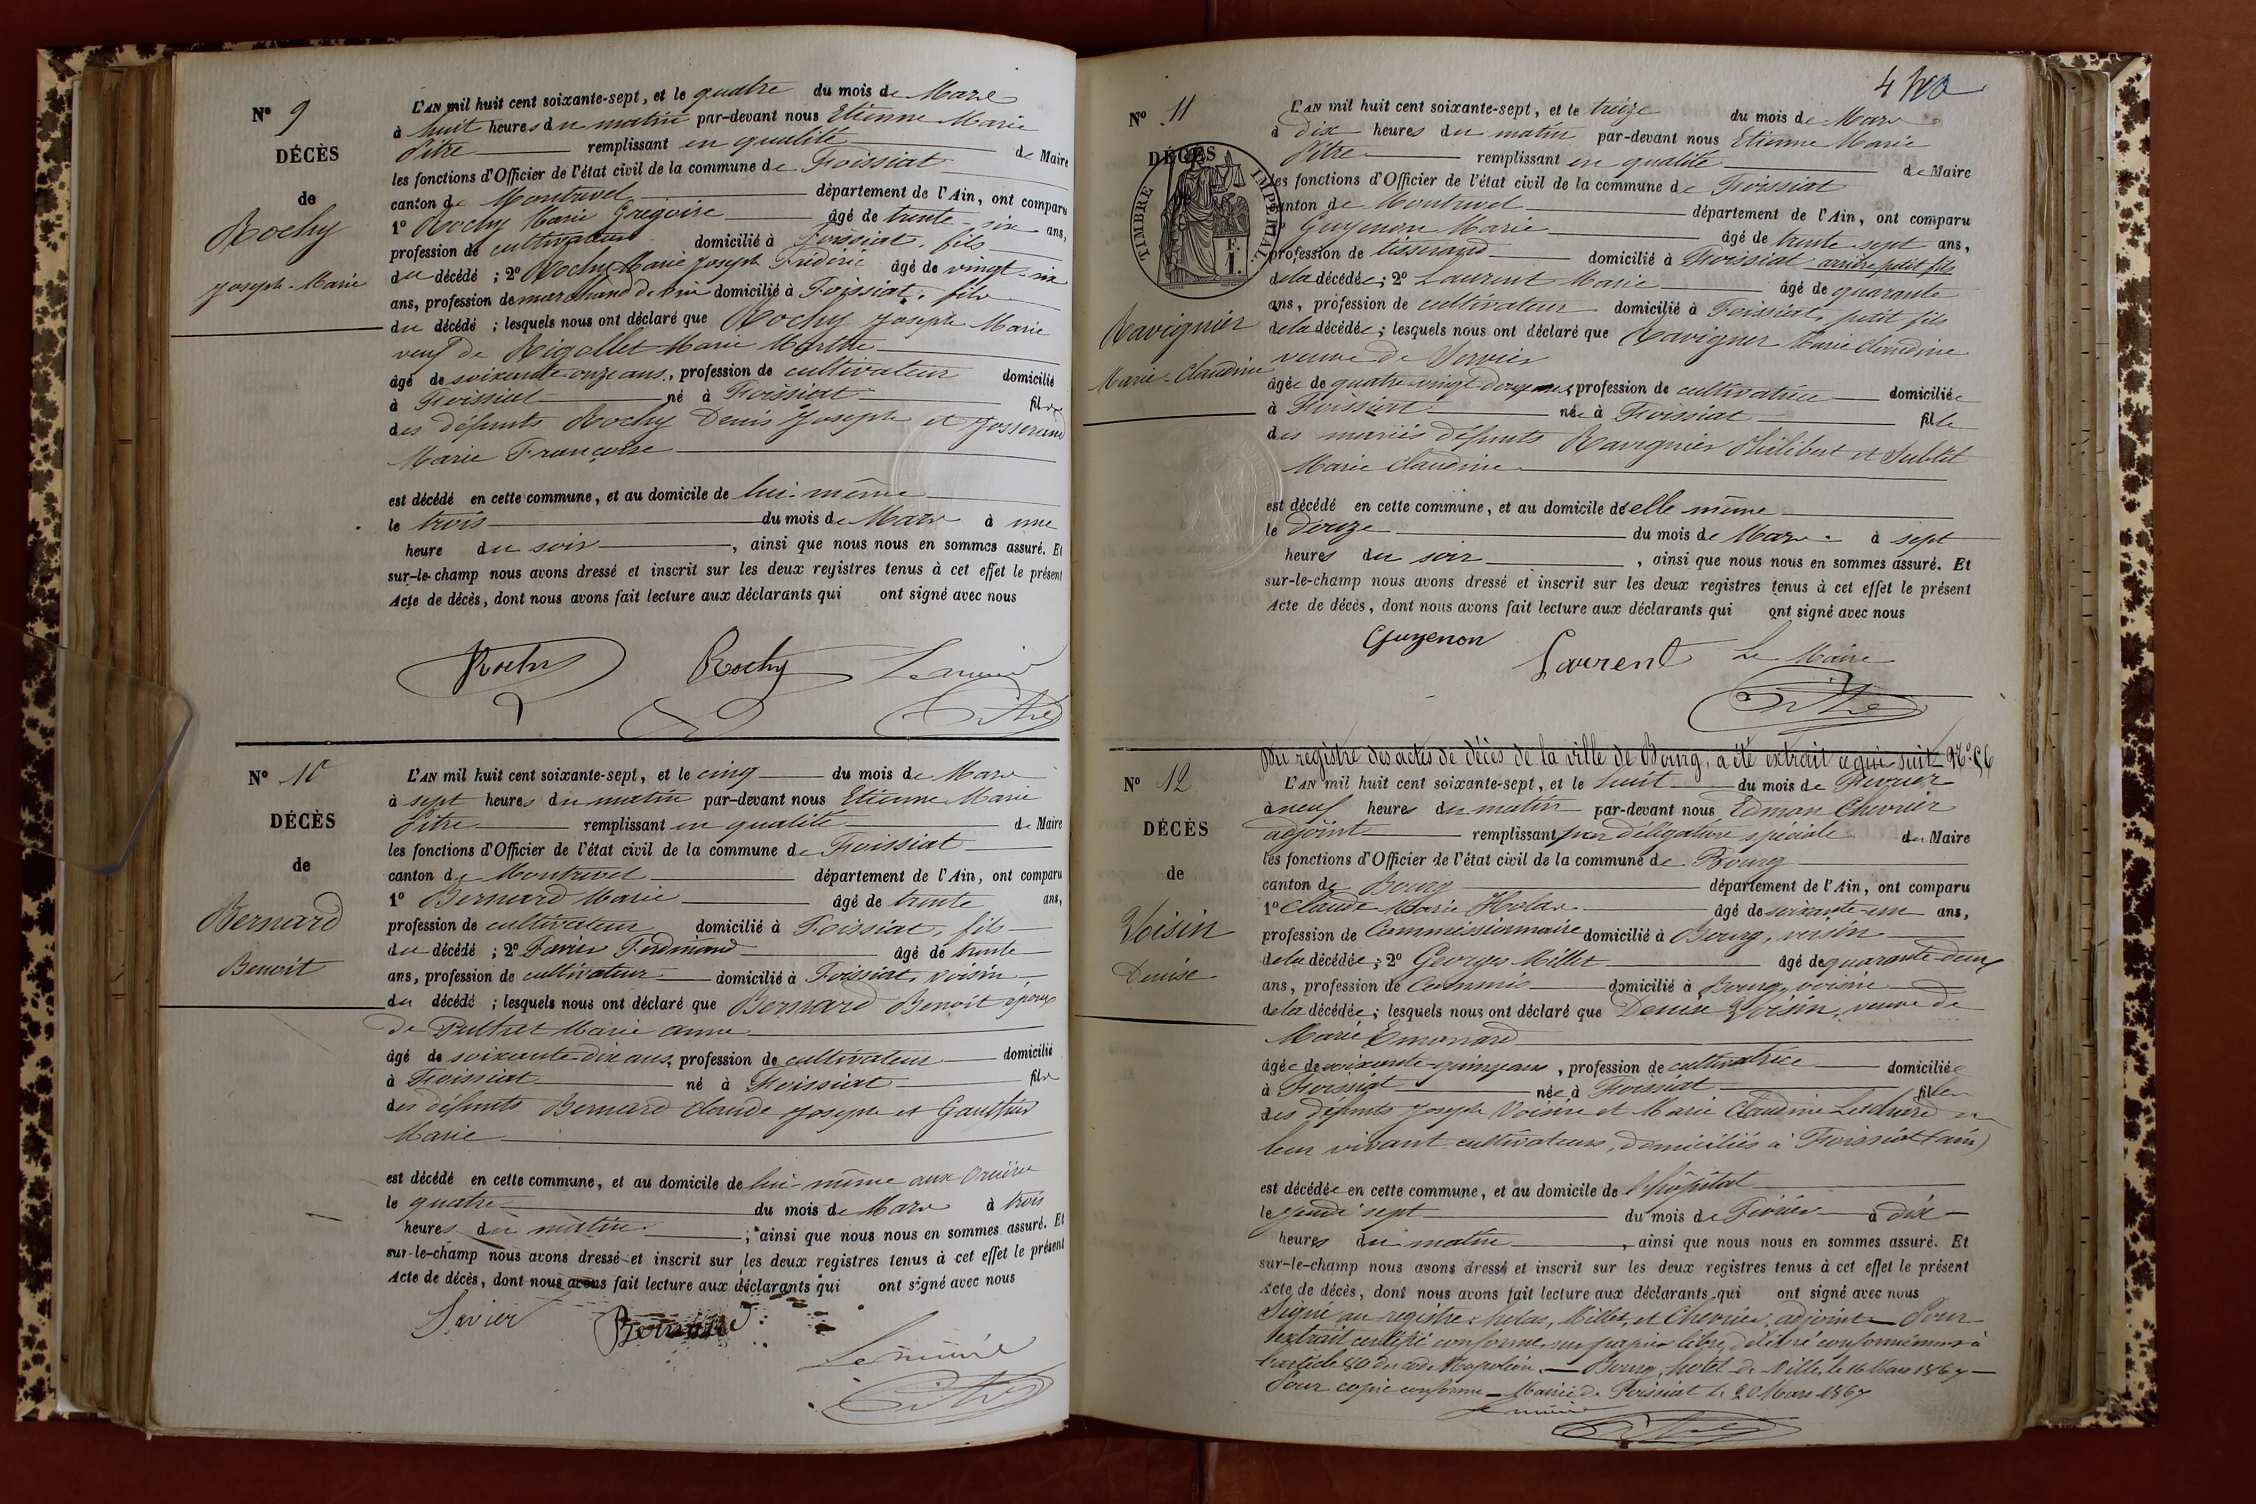 N° 9
DÉCÈS
de
Rochy
Joseph-Marie
L'AN mil huit cent soixante-sept, et le quatre du mois de Mars
à huit heures du matin par-devant nous Etienne Marie
Pitre remplissant en qualité de Maire
les fonctions d'Officier de l'état civil de la commune de Foissiat
canton de Montrevel département de l'Ain, ont comparu
1° Rochy Marie Grégoire âgé de trente-six ans,
profession de cultivateur domicilié à Foissiat, fils
du décédé ; 2° Rochy Marie Joseph Frédéric âgé de vingt-six
ans, profession de marchand de vin domicilié à Foissiat, fils
du décédé ; lesquels nous ont déclaré que Rochy Joseph Marie
veuf de Rigollet Marie Marthe
âgé de soixante-onze ans, profession de cultivateur domicilié
à Foissiat né à Foissiat fils
des défunts Rochy Denis Joseph et Josserand
Marie Françoise
est décédé en cette commune, et au domicile de lui-même
le trois du mois de Mars à une
heure du soir, ainsi que nous nous en sommes assuré. Et
sur-le-champ nous avons dressé et inscrit sur les deux registres tenus à cet effet le présent
Acte de décès, dont nous avons fait lecture aux déclarants qui ont signé avec nous
Rochy Rochy Le maire
Pitre
N° 10
DÉCÈS
de
Bernard
Benoit
L'AN mil huit cent soixante-sept, et le cinq du mois de Mars
à sept heures du matin par-devant nous Etienne Marie
Pitre remplissant en qualité de Maire
les fonctions d'Officier de l'état civil de la commune de Foissiat
canton de Montrevel département de l'Ain, ont comparu
1° Bernard Marie âgé de trente ans,
profession de cultivateur domicilié à Foissiat, fils
du décédé ; 2° Savier Ferdinand âgé de trente
ans, profession de cultivateur domicilié à Foissiat, voisin
du décédé ; lesquels nous ont déclaré que Bernard Benoit époux
de Marie Anne
âgé de soixante-dix ans, profession de cultivateur domicilié
à Foissiat né à Foissiat fils
des défunts Bernard Claude Joseph et Gauthier
Marie
est décédé en cette commune, et au domicile de lui-même aux
le quatre du mois de Mars à trois
heures du matin ; ainsi que nous nous en sommes assuré. Et
sur-le-champ nous avons dressé et inscrit sur les deux registres tenus à cet effet le présent
Acte de décès, dont nous avons fait lecture aux déclarants qui ont signé avec nous
Savier Bernard
Le maire
Pitre
4
N° 11
DÉCÈS
TIMBRE IMPÉRIAL
Ravignier
Marie-Claudine
L'AN mil huit cent soixante-sept, et le treize du mois de Mars
à dix heures du matin par-devant nous Etienne Marie
Pitre remplissant en qualité de Maire
les fonctions d'Officier de l'état civil de la commune de Foissiat
canton de Montrevel département de l'Ain, ont comparu
Guyenon Marie âgé de trente-sept ans,
profession de tisserand domicilié à Foissiat arrière petit fils
de la décédée ; 2° Laurent Marie âgé de quarante
ans, profession de cultivateur domicilié à Foissiat, petit fils
de la décédée ; lesquels nous ont déclaré que Ravignier Marie Claudine
veuve de Servier
âgée de quatre-vingt-douze ans, profession de cultivatrice domiciliée
à Foissiat née à Foissiat fille
des mariés défunts Ravignier Philibert et Sublet
Marie Claudine
est décédé en cette commune, et au domicile d'elle même
le douze du mois de Mars à sept
heures du soir, ainsi que nous nous en sommes assuré. Et
sur-le-champ nous avons dressé et inscrit sur les deux registres tenus à cet effet le présent
Acte de décès, dont nous avons fait lecture aux déclarants qui ont signé avec nous
Guyenon Laurent Le Maire
Pitre
Du registre des actes de décès de la ville de Bourg, a été extrait ce qui suit N° 56
N° 12
DÉCÈS
de
Voisin
Denise
L'AN mil huit cent soixante-sept, et le huit du mois de Février
à neuf heures du matin par-devant nous Edmon Chevrier
adjoint remplissant par délégation spéciale du Maire
les fonctions d'Officier de l'état civil de la commune de Bourg
canton de Bourg département de l'Ain, ont comparu
1° Claude Marie Holas âgé de soixante-un ans,
profession de Commissionnaire domicilié à Bourg, voisin
de la décédée ; 2° Georges Millet âgé de quarante-deux
ans, profession de Commis domicilié à Bourg, voisin
de la décédée ; lesquels nous ont déclaré que Denise Voisin, veuve de
Marie Emonard
âgée de soixante-quinze ans, profession de cultivatrice domiciliée
à Foissiat née à Foissiat fille
des défunts Joseph Voisin et Marie Claudine en
leur vivant cultivateurs, domiciliés à Foissiat (ain)
est décédée en cette commune, et au domicile de l'hôpital
le jeudi sept du mois de Février à dix
heures du matin, ainsi que nous nous en sommes assuré. Et
sur-le-champ nous avons dressé et inscrit sur les deux registres tenus à cet effet le présent
Acte de décès, dont nous avons fait lecture aux déclarants qui ont signé avec nous
Signé au registre Holas, Millet, et Chevrier, adjoint. Pour
extrait certifié conforme sur papier libre, délivré conformément à
l'article 80 du code Napoléon. Bourg, hotel de Ville, le 16 Mars 1867
Pour copie conforme - Mairie de Foissiat le 20 Mars 1867
Le maire
Pitre